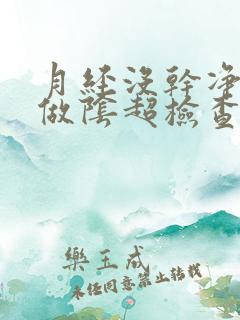 月经沒幹净
做陰超檢查
樂玉成
未經同意禁止转載